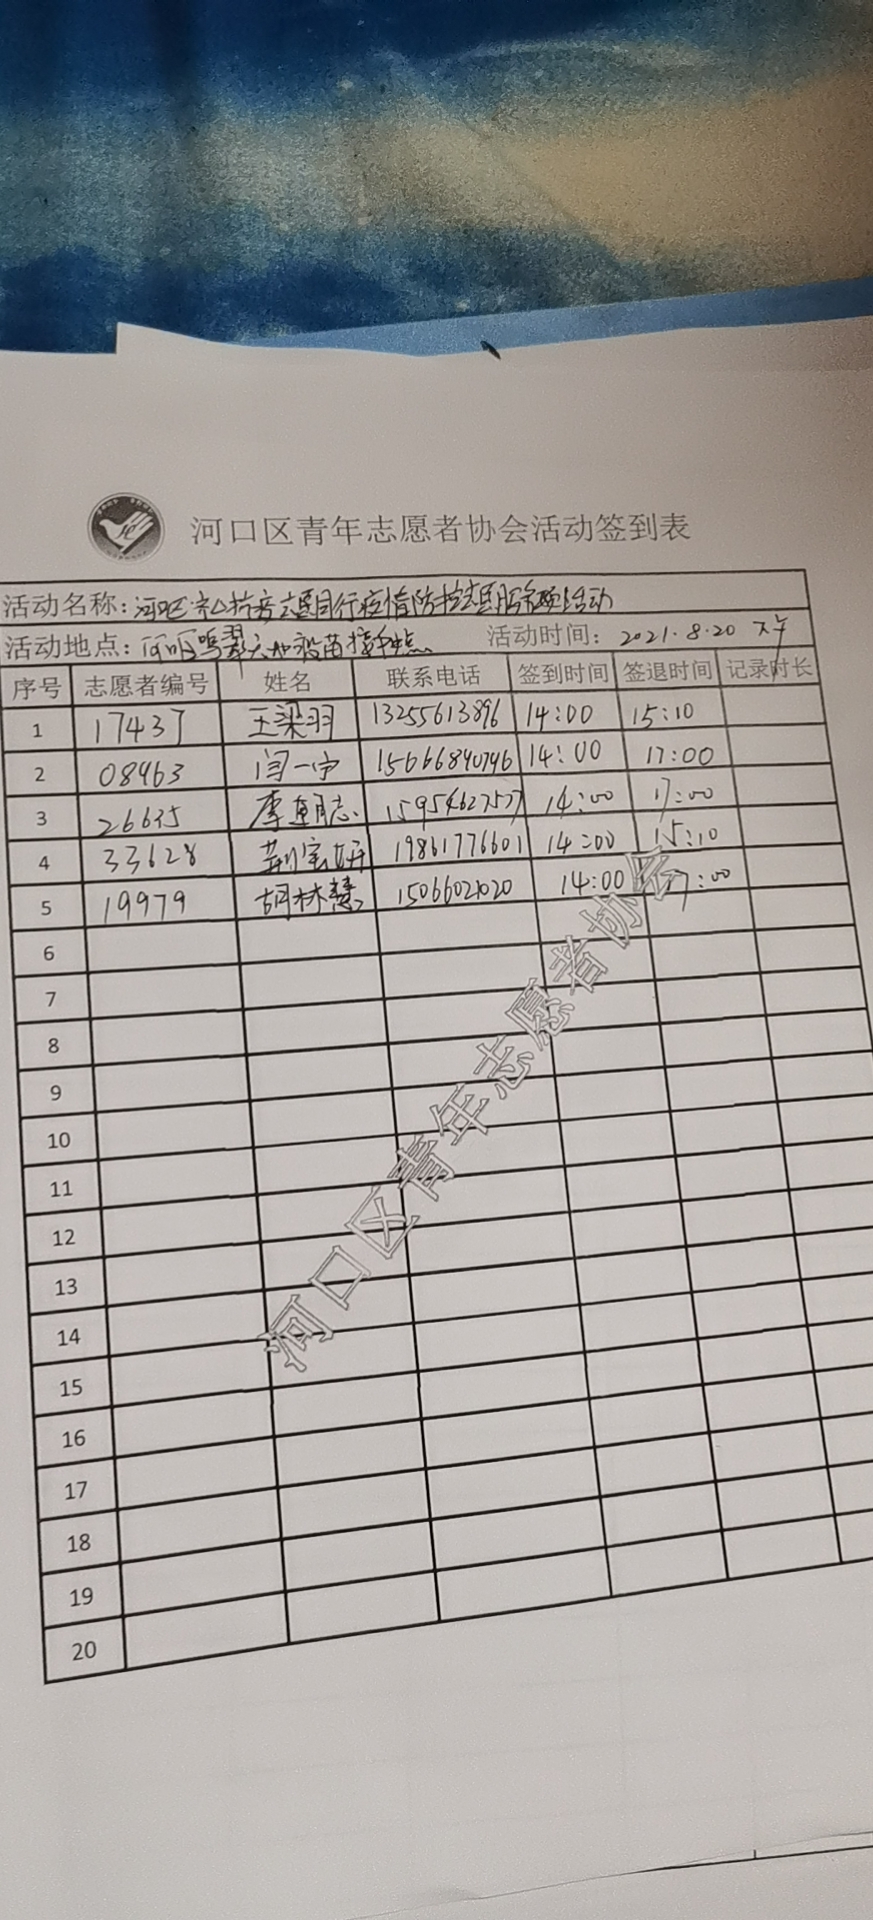 河口区青年志愿者协会活动签到表
活动名称：河口区众心抗疫志愿同行疫情防控志愿服务项目活动
活动地点：河口区鸣翠 疫苗接种点 活动时间：2021.8.20 下午
序号 志愿者编号 姓名 联系电话 签到时间 签退时间 记录时长
1 17437 王梁羽 13255613896 14:00 15:10
2 08463 闫一宁 15666840746 14:00 17:00
3 26635 李朝志 15954627577 14:00 17:00
4 33628 荆宝妍 19861776601 14:00 15:10
5 19979 胡林慧 15066021020 14:00 17:00
6
7
8
9
10
11
12
13
14
15
16
17
18
19
20
河口区青年志愿者协会